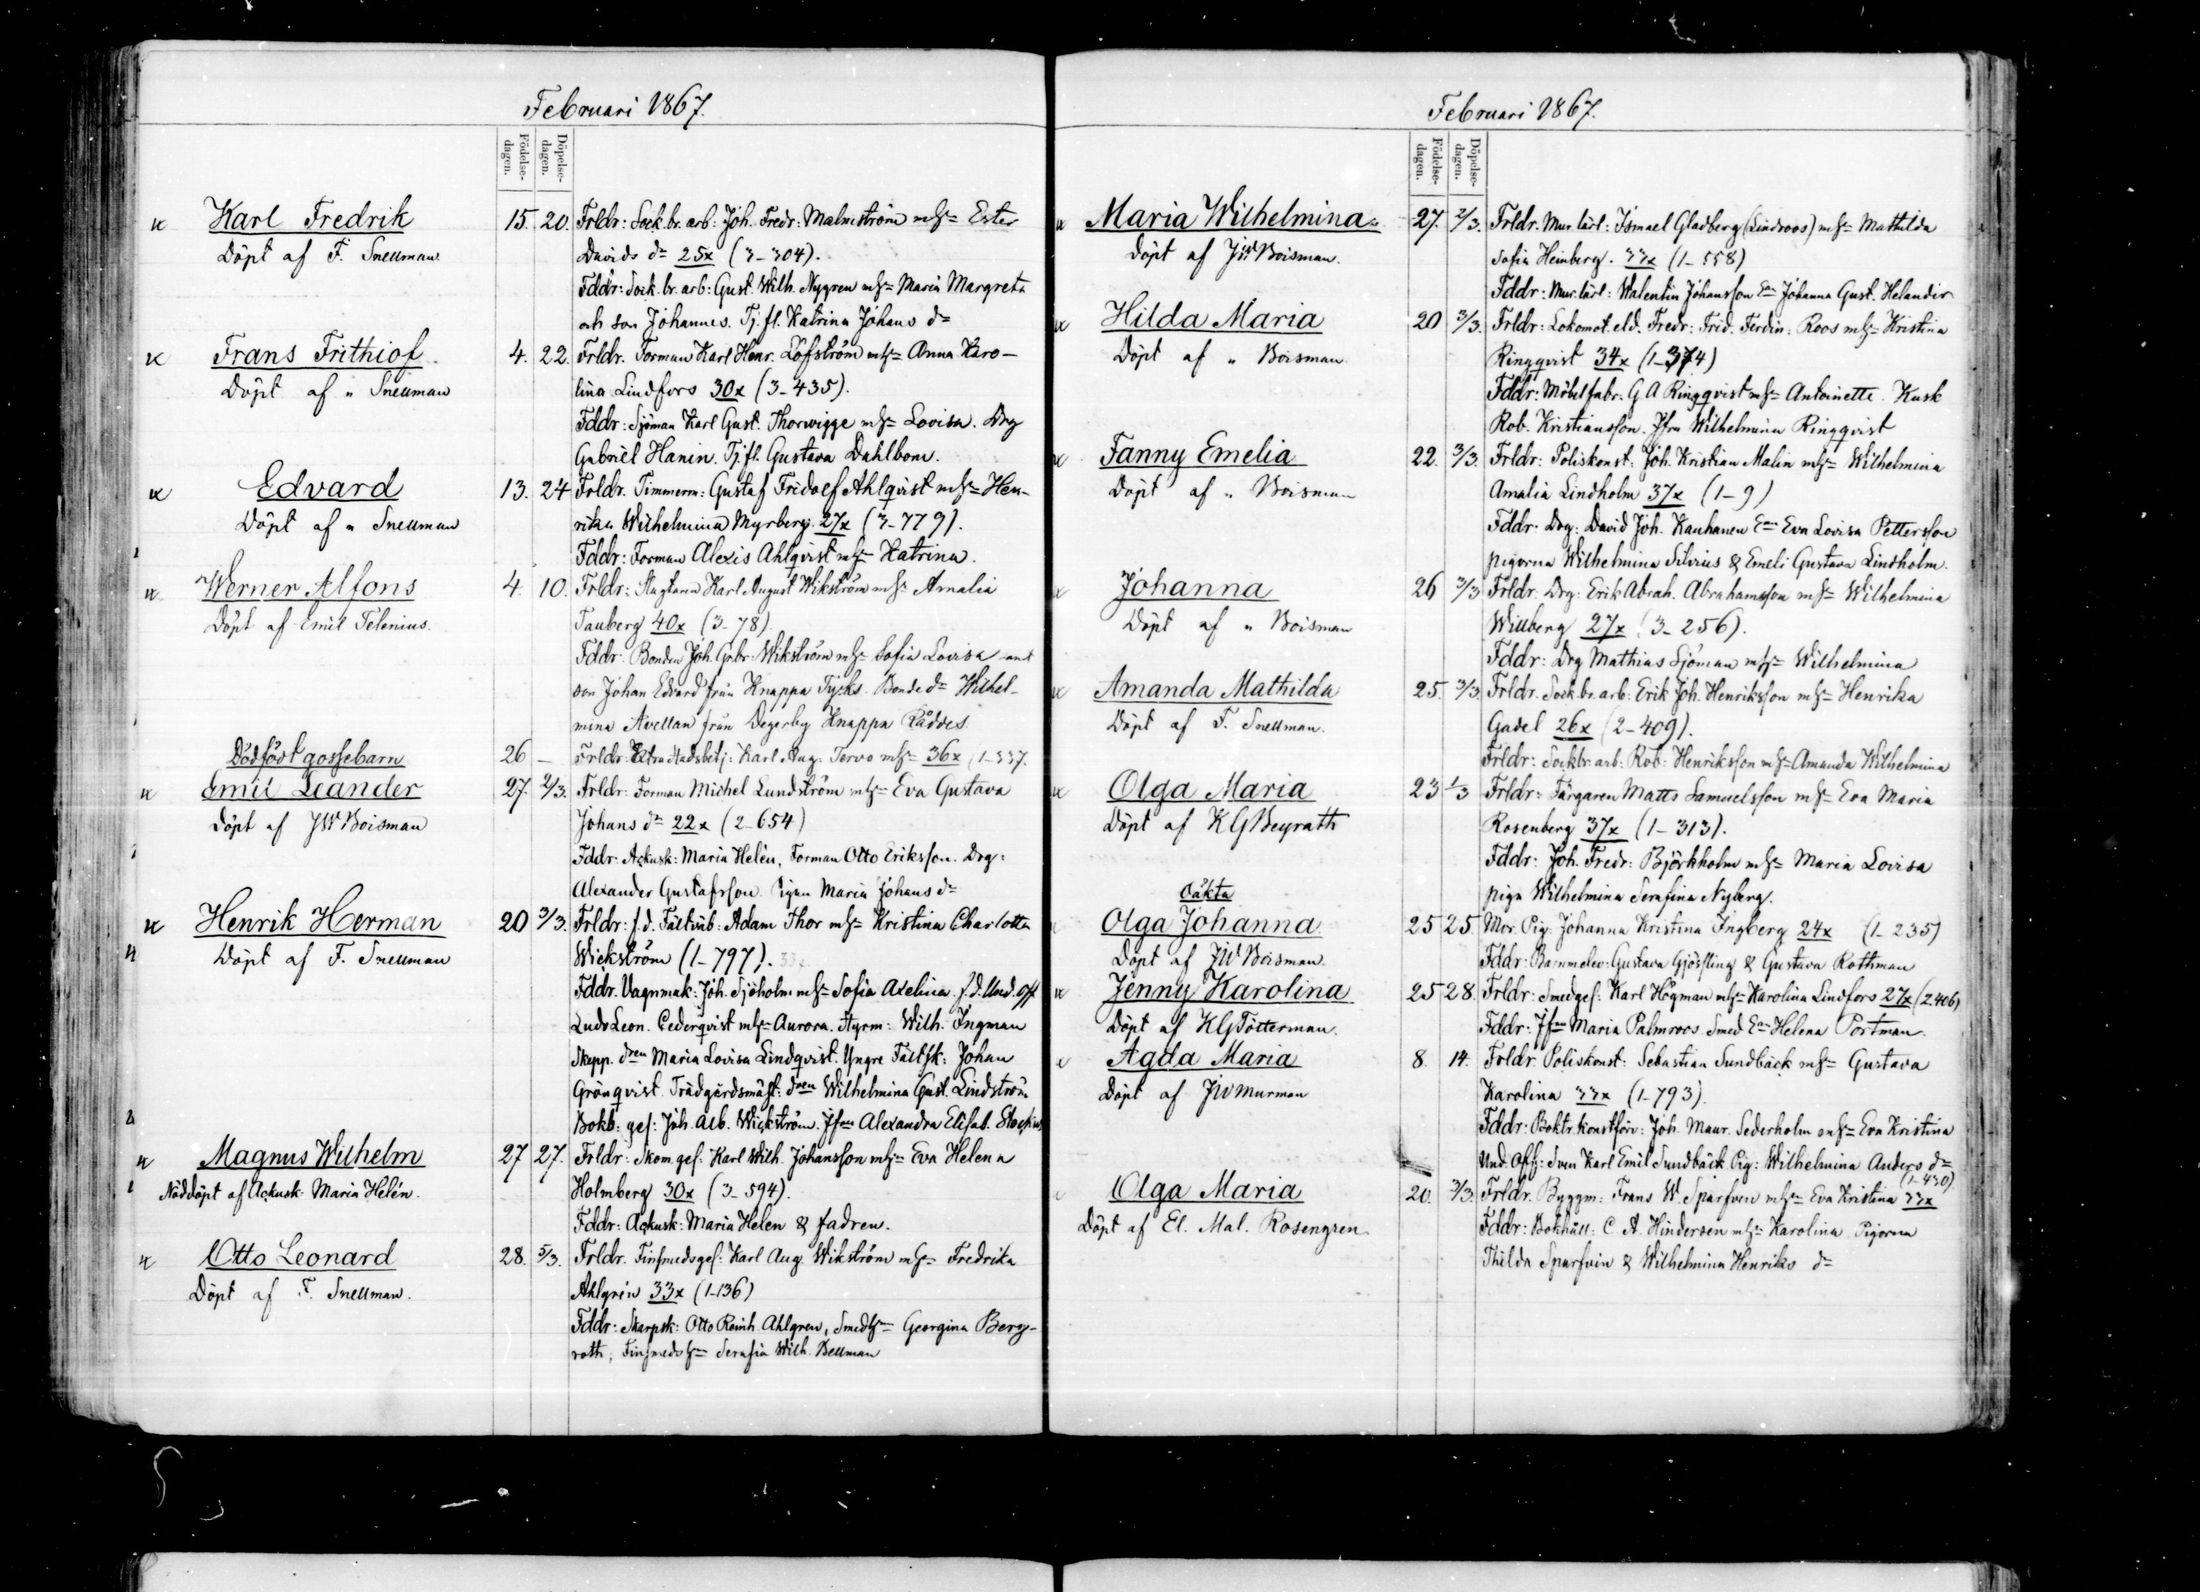 Februari 1867.
Födelse-
dagen.
Döpelse-
dagen.
Karl Fredrik 15. 20. Frldr: Sock. br. arb: Joh. Fredr: Malmström mhn Ester
Döpt af F. Snellman Davids dr 25x (3-304).
Fddr: Sock. br. arb: Gust. Wilh. Nygren mhn Maria Margreta
och son Johannes. Tj. fl. Katrina Johans dr
Frans Frithiof 4. 22. Frldr. Forman Karl Henr. Löfström mhn Anna Karo-
Döpt af " Snellman lina Lindfors 30x (3-435).
Fddr: Sjöman Karl Gust. Thorwigge mhn Lovisa. Drg
Gabriel Hanin. Tj. fl. Gustava Dahlbom.
Edvard 13. 24 Frldr. Timmerm: Gustaf Fridolf Ahlqvist mhn Hen-
Döpt af " Snellman rika Wilhelmina Myrberg. 27x (3-779).
Fddr: Forman Alexis Ahlqvist mhn Katrina.
Werner Alfons 4. 10. Frldr: Slagtaren Karl August Wikström mhn Amalia
Döpt af Emil Telenius. Tauberg 40x (3-78)
Fddr: Bonden Joh. Gabr. Wikström mhn Sofia Lovisa samt
son Johan Edvard från Knappa Tycks. Bonde dr Wilhel-
mina Avellan från Degerby Knappa Råddes
Dödfödt gossebarn 26 — Frldr: Extra stadsbetj: Karl Aug: Tervo mhn 36x (1-337.
Emil Leander 27. 2/3. Frldr: Forman Michel Lundström mhn Eva Gustava
Döpt af JW Boisman Johans dr 22x (2-654)
Fddr: Ackusk: Maria Helén, Forman Otto Eriksson. Drg:
Alexander Gustafsson. Pigan Maria Johans dr
Henrik Herman 20 3/3. Frldr: f.d. Fältväb: Adam Thor mhn Kristina Charlotta
Döpt af F. Snellman Wickström (1-797). 33x
Fddr. Vagnmak: Joh. Sjöholm mhn Sofia Axelina. f.d. Und. Off
Ludv Leon. Cederqvist mhn Aurora. Styrm: Wilh. Ingman
Skepp. dren Maria Lovisa Lindqvist. Yngre Fältsk: Johan
Grönqvist. Trädgårdsmäst: dren Wilhelmina Gust. Lindström
Bokb: ges: Joh. Alb. Wickström. Jfrn Alexandra Elisab.
Magnus Wilhelm 27 27. Frldr: Skom. ges: Karl Wilh. Johansson mhn Eva Helena
Nöddöpt af Ackusk. Maria Helén. Holmberg 30x (3-594).
Fddr: Ackusk: Maria Helen & fadren.
Otto Leonard 28. 5/3. Frldr. Finsmedsges: Karl Aug. Wikström mhn Fredrika
Döpt af F. Snellman. Ahlgrén 33x (1-136)
Fddr: Skarpsk: Otto Reinh. Ahlgren, Smedhn Georgina Berg-
roth, Finsmeds hn Serafia Wilh. Bellman
Februari 1867.
Födelse-
dagen.
Döpelse-
dagen.
Maria Wilhelmina 27. 2/3. Frldr. Mur. lärl: Ismael Gladberg (Lindroos) mhn Mathilda
Döpt af JW Boisman. Sofia Heinberg. 33x (1-558)
Fddr: Mur. lärl: Walentin Johansson Enn Johanna Gust. Helander
Hilda Maria 20 3/3. Frldr: Lokomot. eld. Fredr: Frid. Ferdin: Roos mhn Kristina
Döpt af " Boisman Ringqvist 34x (1-374)
Fddr: Möbelfabr. G A Ringqvist mhn Antoinette. Kusk
Rob. Kristiansson. Jfru Wilhelmina Ringqvist
Fanny Emelia 22. 3/3. Frldr: Poliskonst: Joh. Kristian Malin mhn Wilhelmina
Döpt af " Boisman Amalia Lindholm 37x (1-9)
Fddr. Drg: David Joh. Kauhanen Enn Eva Lovisa Pettersson
pigorna Wilhelmina Silvius & Emeli Gustava Lindholm.
Johanna 26 3/3 Frldr: Drg: Erik Abrah. Abrahamsson mhn Wilhelmina
Döpt af " Boisman Willberg 27x (3-256).
Fddr: Drg Mathias Sjöman mhn Wilhelmina
Amanda Mathilda 25. 3/3. Frldr. Sock. br. arb: Erik Joh. Henriksson mhn Henrika
Döpt af F. Snellman. Gadel 26x (2-409).
Frldr: Sockbr. arb: Rob: Henriksson mhn Amanda Wilhelmina
Olga Maria 23 1/3 Frldr: Färgaren Matts Samuelsson mhn Eva Maria
Döpt af K G Beyrath Rosenberg 37x (1-313).
Fddr: Joh. Fredr: Björkholm mhn Maria Lovisa
piga Wilhelmina Serafina Nyberg.
Oäkta
Olga Johanna 25 25. Mor. Pig: Johanna Kristina Ingberg 24x (1-235)
Döpt af JW Boisman. Fddr: Barnmelev: Gustava Gjössling & Gustava Rothman
Jenny Karolina 25 28. Frldr: Smedges: Karl Högman mhn Karolina Lindfors 27x (2.406)
Döpt af K G Totterman. Fddr: Jfrn Maria Palmroos Smed Enn Helena Portman.
Agda Maria 8. 14. Frldr Poliskonst: Sebastian Sundbäck mhn Gustava
Döpt af JW Murman Karolina 33x (1-793).
Fddr: Boktr. konstförv: Joh. Maur. Sederholm mhn Eva Kristina
Und. Off: Sven Karl Emil Sundbäck Pig: Wilhelmina Anders dr
(1-430)
Olga Maria 20. 3/3. Frldr. Byggm: Frans W. Sparfven mhn Eva Kristina 33x
Döpt af El. Mal. Rosengren Fddr: Bokhåll: C. A. Hindersen mhn Karolina. Pigorna
Thilda Sparfvin & Wilhelmina Henriks dr